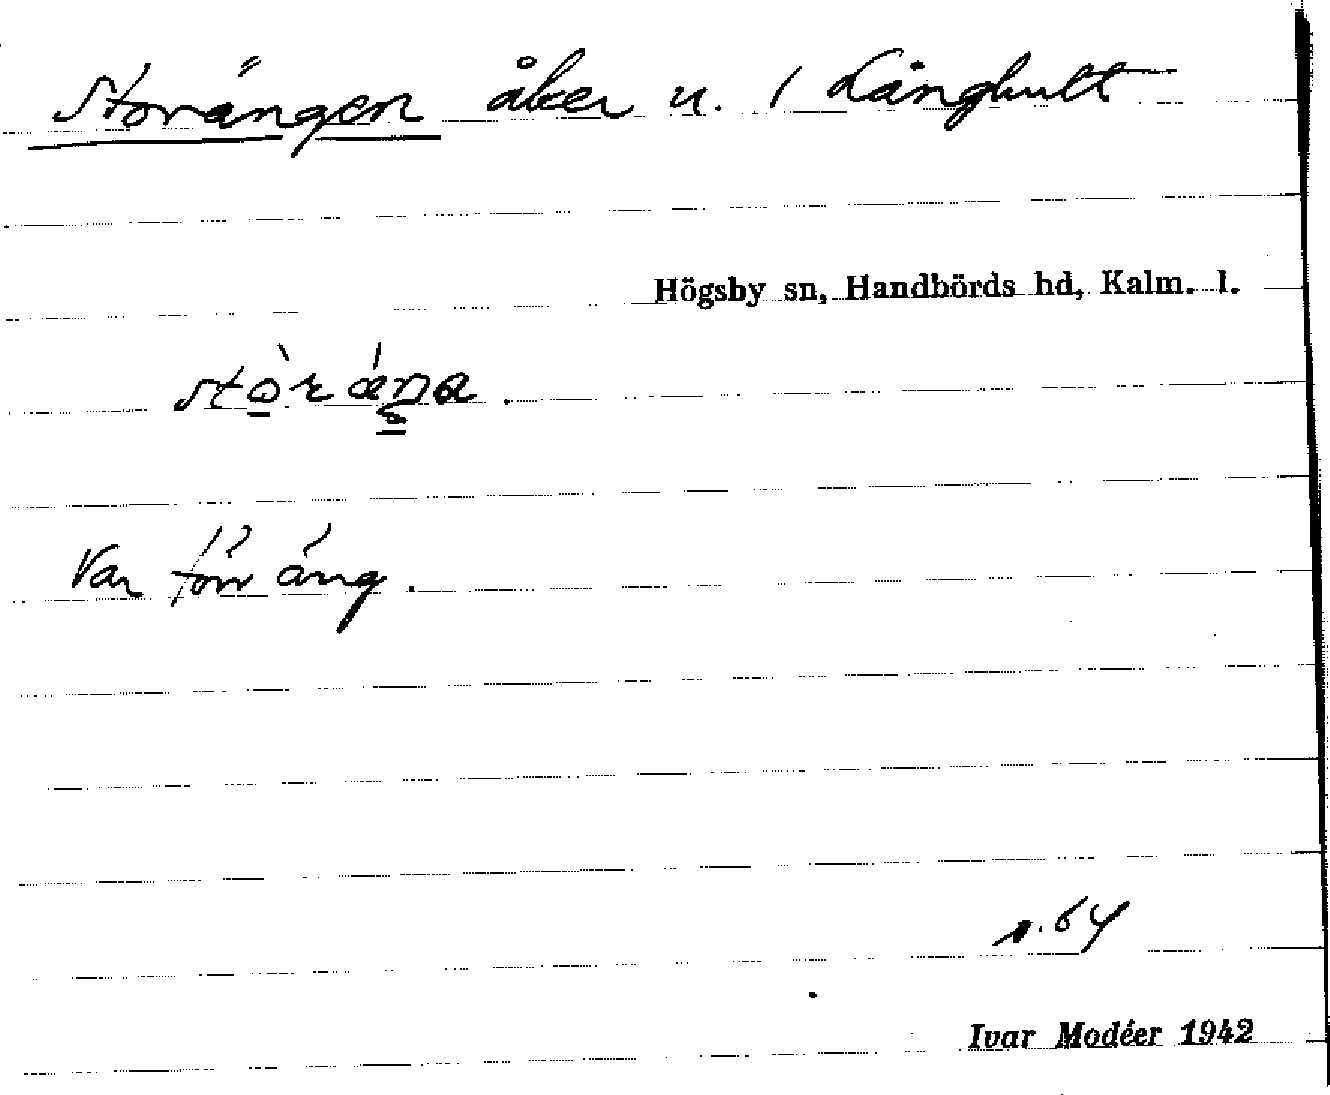 Storängen åker u. 1 Långhult
Högsby sn, Handbörds hd, Kalm. l.
Var förr äng.
s. 64
Ivar Modéer 1942